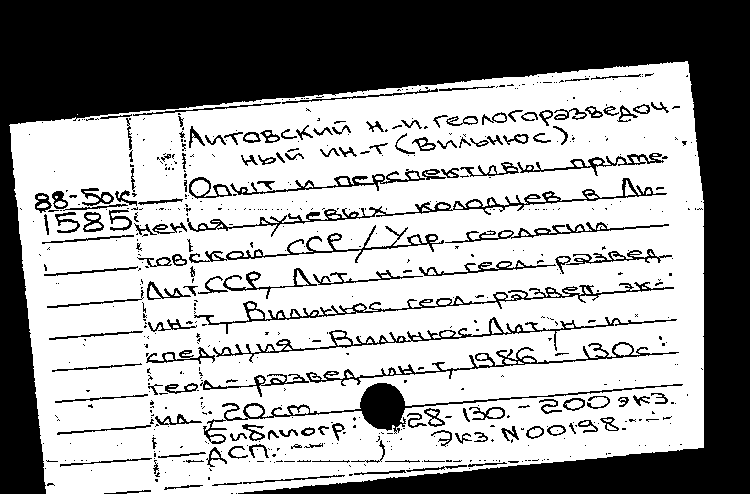 Литовский н.-и. геологоразведоч-
ный ин-т (Вильнюс).
88-5ок
Опыт и перспективы приме-
1585
нения лучевых колодцев в Ли-
товской ССР / Упр. геологии
ЛитССР, Лит. н.-и. геол.-развед.
ин-т, Вильнюс. геол.-развед. эк-
спедиция - Вильнюс: Лит. н-и.
геол.-развед. ин-т, 1986. - 130с:
ил.; 20 cm.
Библиогр.: 128-130. - 200 экз.
ДСП. Экз. N00198.